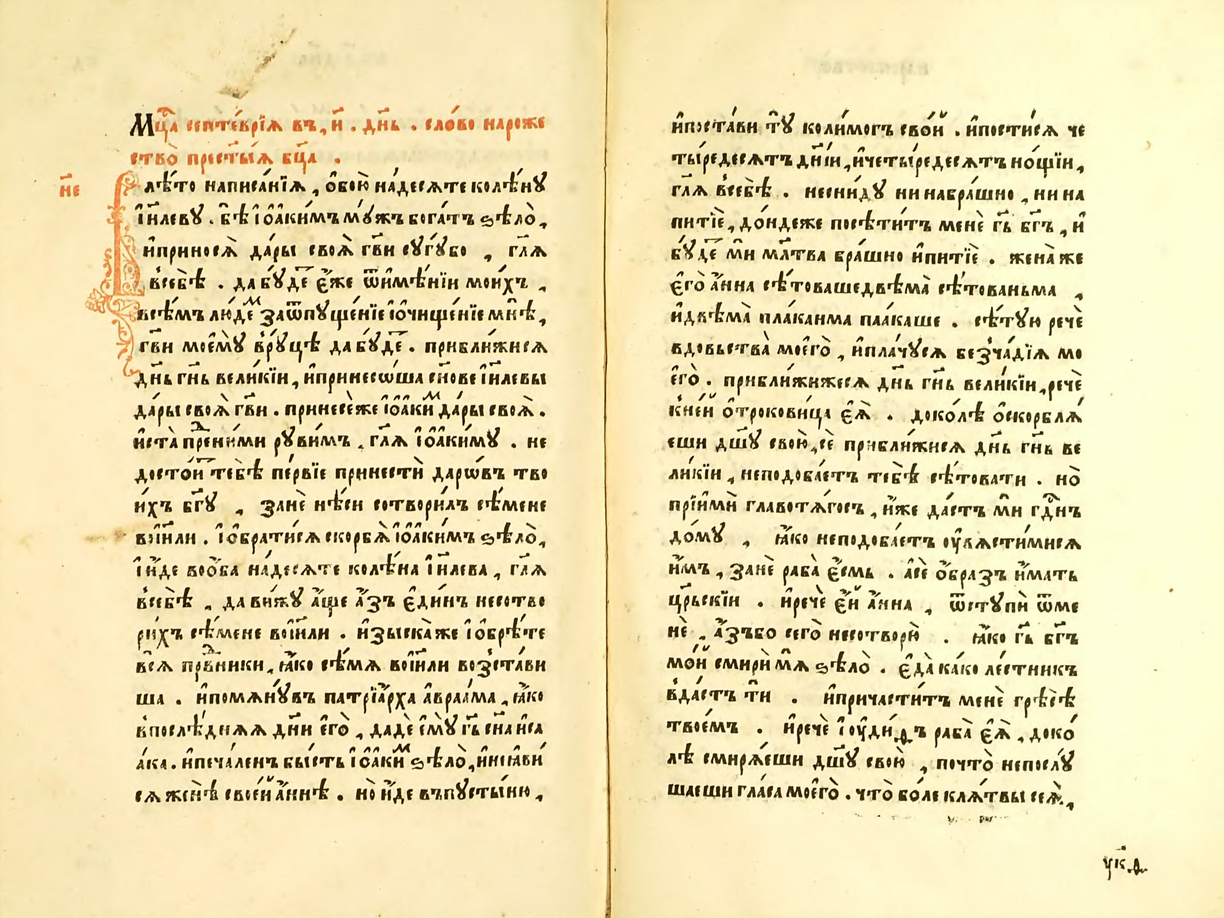 Мцⷭ҇а септе́врїѧ въ, и҃ . дн҃ь . сло́во нароже
ство̀ прест҃ы́ѧ бц҃а .
н҃е
Влѣ́то написа́нїѧ , ѻ҆бою̀ на́десѧте колѣ́нꙋ
і҆и҃левꙋ . бѣ̀ і҆ѡаки́мъ мꙋ́жъ бога́тъ ѕѣло̀ ,
и҆приносѧ̀ да́ры своѧ̀ гв҃и сꙋгꙋ́бо , гл҃ѧ
всебѣ̀ . да бꙋ́деⷮ є҆́же ѿимѣ́нїи мои́хъ ,
всѣ́мъ лю́деⷨ заѿпꙋще́нїе і҆ѡчище́нїе мнѣ̀ ,
гв҃и моемꙋ̀ врꙋцѣ̀ да бꙋ́деⷮ . прибли́жисѧ
дн҃ь гн҃ь вели́кїи , и҆принесо́ша сн҃ове і҆и҃левы
да́ры своѧ̀ гв҃и . принесе́же і҆ѡаки́ⷨ да́ры своѧ̀ .
и҆ста̀ преⷣни́ми рꙋви́мъ . гл҃ѧ і҆ѡаки́мꙋ . не
досто́иⷩ тебѣ̀ пе́рвїе принестѝ даро́въ тво
и́хъ бг҃ꙋ , занѐ нѣ́си сотвори́лъ сѣ́мене
вои҃ли . і҆ѡбрати́сѧ скорбѧ̀ і҆ѡаки́мъ ѕѣло̀ ,
і҆и́де воѻба на́десѧте колѣ́на і҆и҃лева , гл҃ѧ
всебѣ̀ , да ви́жꙋ а҆́ще а҆́зъ є҆ди́нъ несотво
ри́хъ сѣ́мене вои҃ли . и҆зыска́же і҆ѡбрѣ́те
всѧ̀ праⷣвники , ꙗ҆́ко сѣ́мѧ вои҃ли возста́ви
ша . и҆помѧнꙋ́въ патрїа́рха а҆враа́ма , ꙗ҆́ко
впослѣ́днѧѧ дн҃и є҆го̀ , дадѐ є҆мꙋ̀ гь҃ сн҃а иса
а́ка . и҆печа́ленъ бы́сть і҆ѡаки́ⷨ ѕѣло̀ , инеꙗ҆ви
сѧ женѣ̀ свое́и а҆́ннѣ . но и҆́де въпꙋсты́ню ,
и҆поста́ви тꙋ̀ коли́могъ свои̑ . и҆пости́сѧ че
ты́редесѧтъ дн҃їи , и҆четы́редесѧтъ но́щїи ,
гл҃ѧ всебѣ̀ . несни́дꙋ ни набра́шно , ни на
питїѐ , до́ндеже посѣти́тъ менѐ гь҃ бг҃ъ , и҆
бꙋ́деⷮ ми мл҃тва бра́шно и҆питїѐ . жена́же
є҆го̀ а҆́нна сѣ́товаше двѣма̀ сѣ́тованьма ,
и҆двѣма̀ пла́канма пла́каше . сѣ́тꙋю речѐ
вдовьства̀ моего̀ , и҆пла́чꙋсѧ безча́дїѧ мо
его̀ . прибли́жижесѧ дн҃ь гн҃ь вели́кїи , речѐ
кне́и ѻ҆трокови́ца є҆ѧ̀ . доко́лѣ ѻ҆скорблѧ́
еши дш҃ꙋ свою̀ , сѐ прибли́жисѧ дн҃ь гн҃ь ве
ли́кїи , неподоба́етъ тебѣ̀ сѣ́товати . но̀
прїимѝ главотѧ́госъ , и҆́же да́стъ ми гдⷭ҇нъ
до́мꙋ , ꙗ҆́ко неподоба́етъ ᲂу҆вѧсти́мисѧ
и҆́мъ , занѐ раба̀ є҆́смь . а҆сѐ ѻ҆́бразъ и҆́мать
црⷭ҇кїи . и҆речѐ є҆́и а҆́нна , ѿстꙋпѝ ѿме
нѐ , а҆́зъбо сего̀ несотворю̀ . ꙗ҆́ко гь҃ бг҃ъ
мо́и смирѝ мѧ̀ ѕѣло̀ . є҆да̀ ка́ко ле́стникъ
вда́стъ ти̑ . и҆причасти́тъ менѐ грѣсѣ̀
твое́мъ . и҆речѐ і҆ᲂуди́ѳъ раба̀ є҆ѧ̀ , доко́
лѣ смирѧ́еши дш҃ꙋ свою̀ , почто̀ непослꙋ́
шаеши гла́са моего̀ . что̀ бо́ле клѧ́твы сеѧ̀ ,